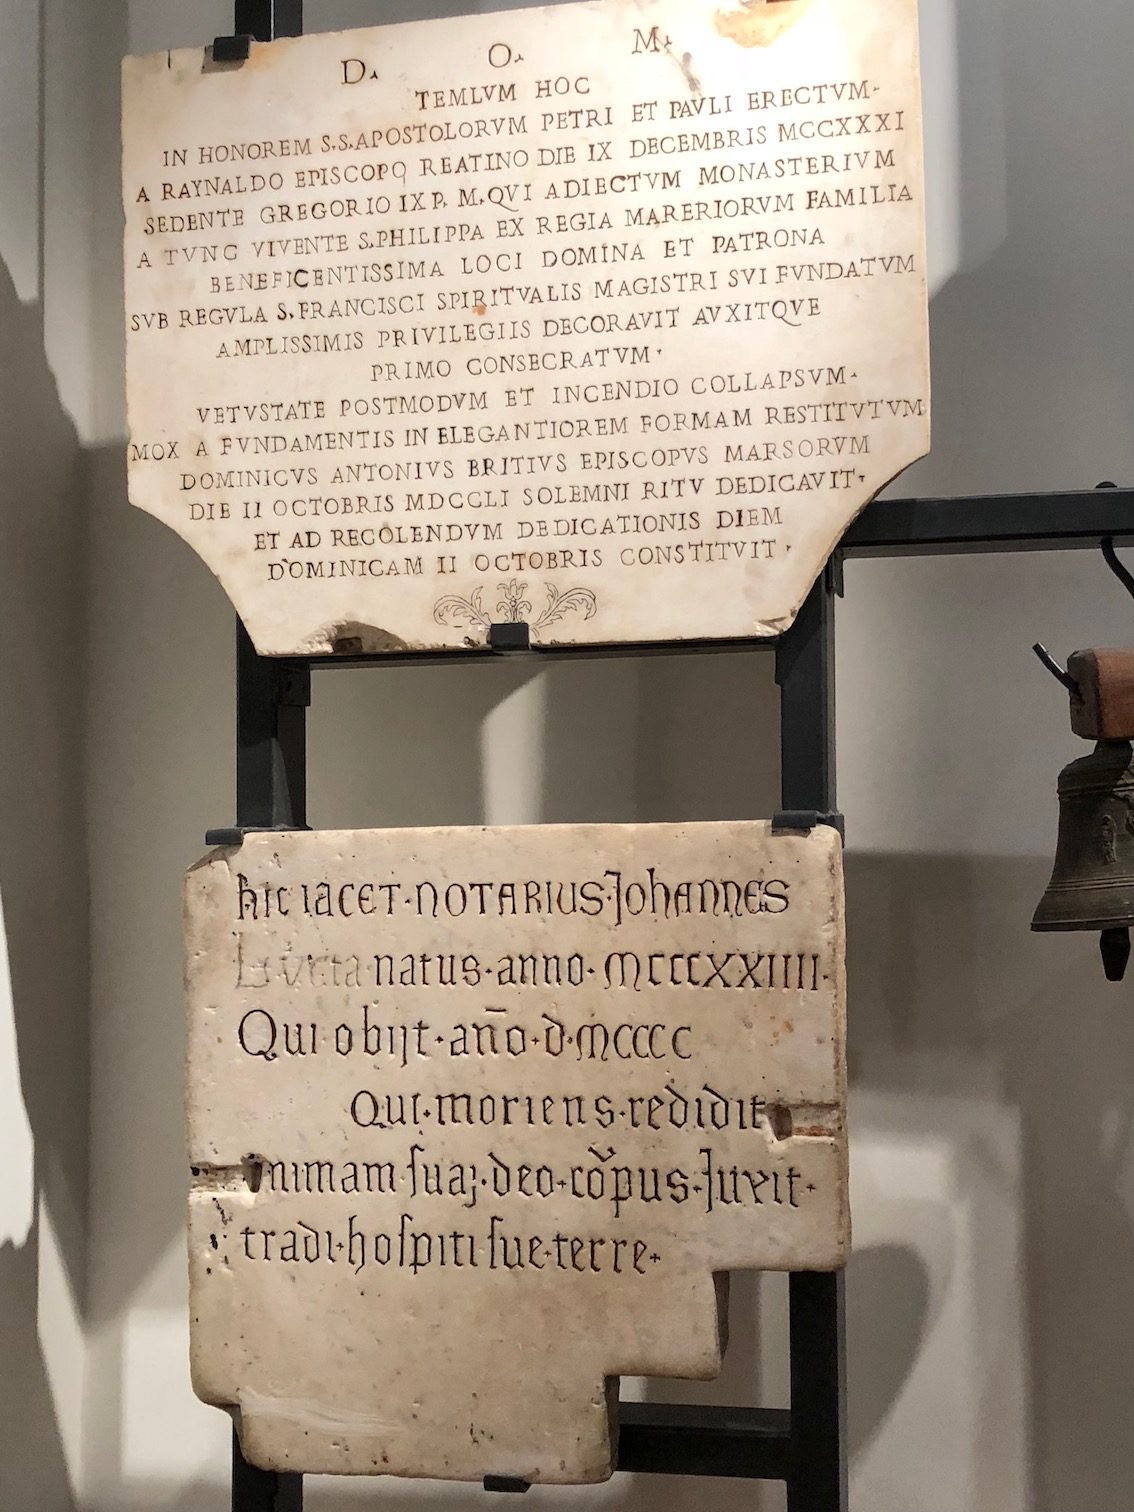 D. O. M.
TEMLVM HOC
IN HONOREM S.S. APOSTOLORVM PETRI ET PAVLI ERECTVM
A RAYNALDO EPISCOPO REATINO DIE IX DECEMBRIS MCCXXXI
SEDENTE GREGORIO IX P. M. QVI ADIECTVM MONASTERIVM
A TVNC VIVENTE S. PHILIPPA EX REGIA MARERIORVM FAMILIA
BENEFICENTISSIMA LOCI DOMINA ET PATRONA
SVB REGVLA S. FRANCISCI SPIRITVALIS MAGISTRI SVI FVNDATVM
AMPLISSIMIS PRIVILEGIIS DECORAVIT AVXITQVE
PRIMO CONSECRATVM·
VETVSTATE POSTMODVM ET INCENDIO COLLAPSVM·
MOX A FVNDAMENTIS IN ELEGANTIOREM FORMAM RESTITVTVM
DOMINICVS ANTONIVS BRITIVS EPISCOPVS MARSORVM
DIE II OCTOBRIS MDCCLI SOLEMNI RITV DEDICAVIT·
ET AD RECOLENDVM DEDICATIONIS DIEM
DOMINICAM II OCTOBRIS CONSTITVIT·
hic IACET·NOTARIUS·Johannes
natus·anno·MCCCXXIIII·
Qui obijt·an̄o·d·MCCCC
Qui·moriens·redidit
nimam·ſuaȝ·deo·co᷒pus·
tradi·hoſpiti ſue·terre·